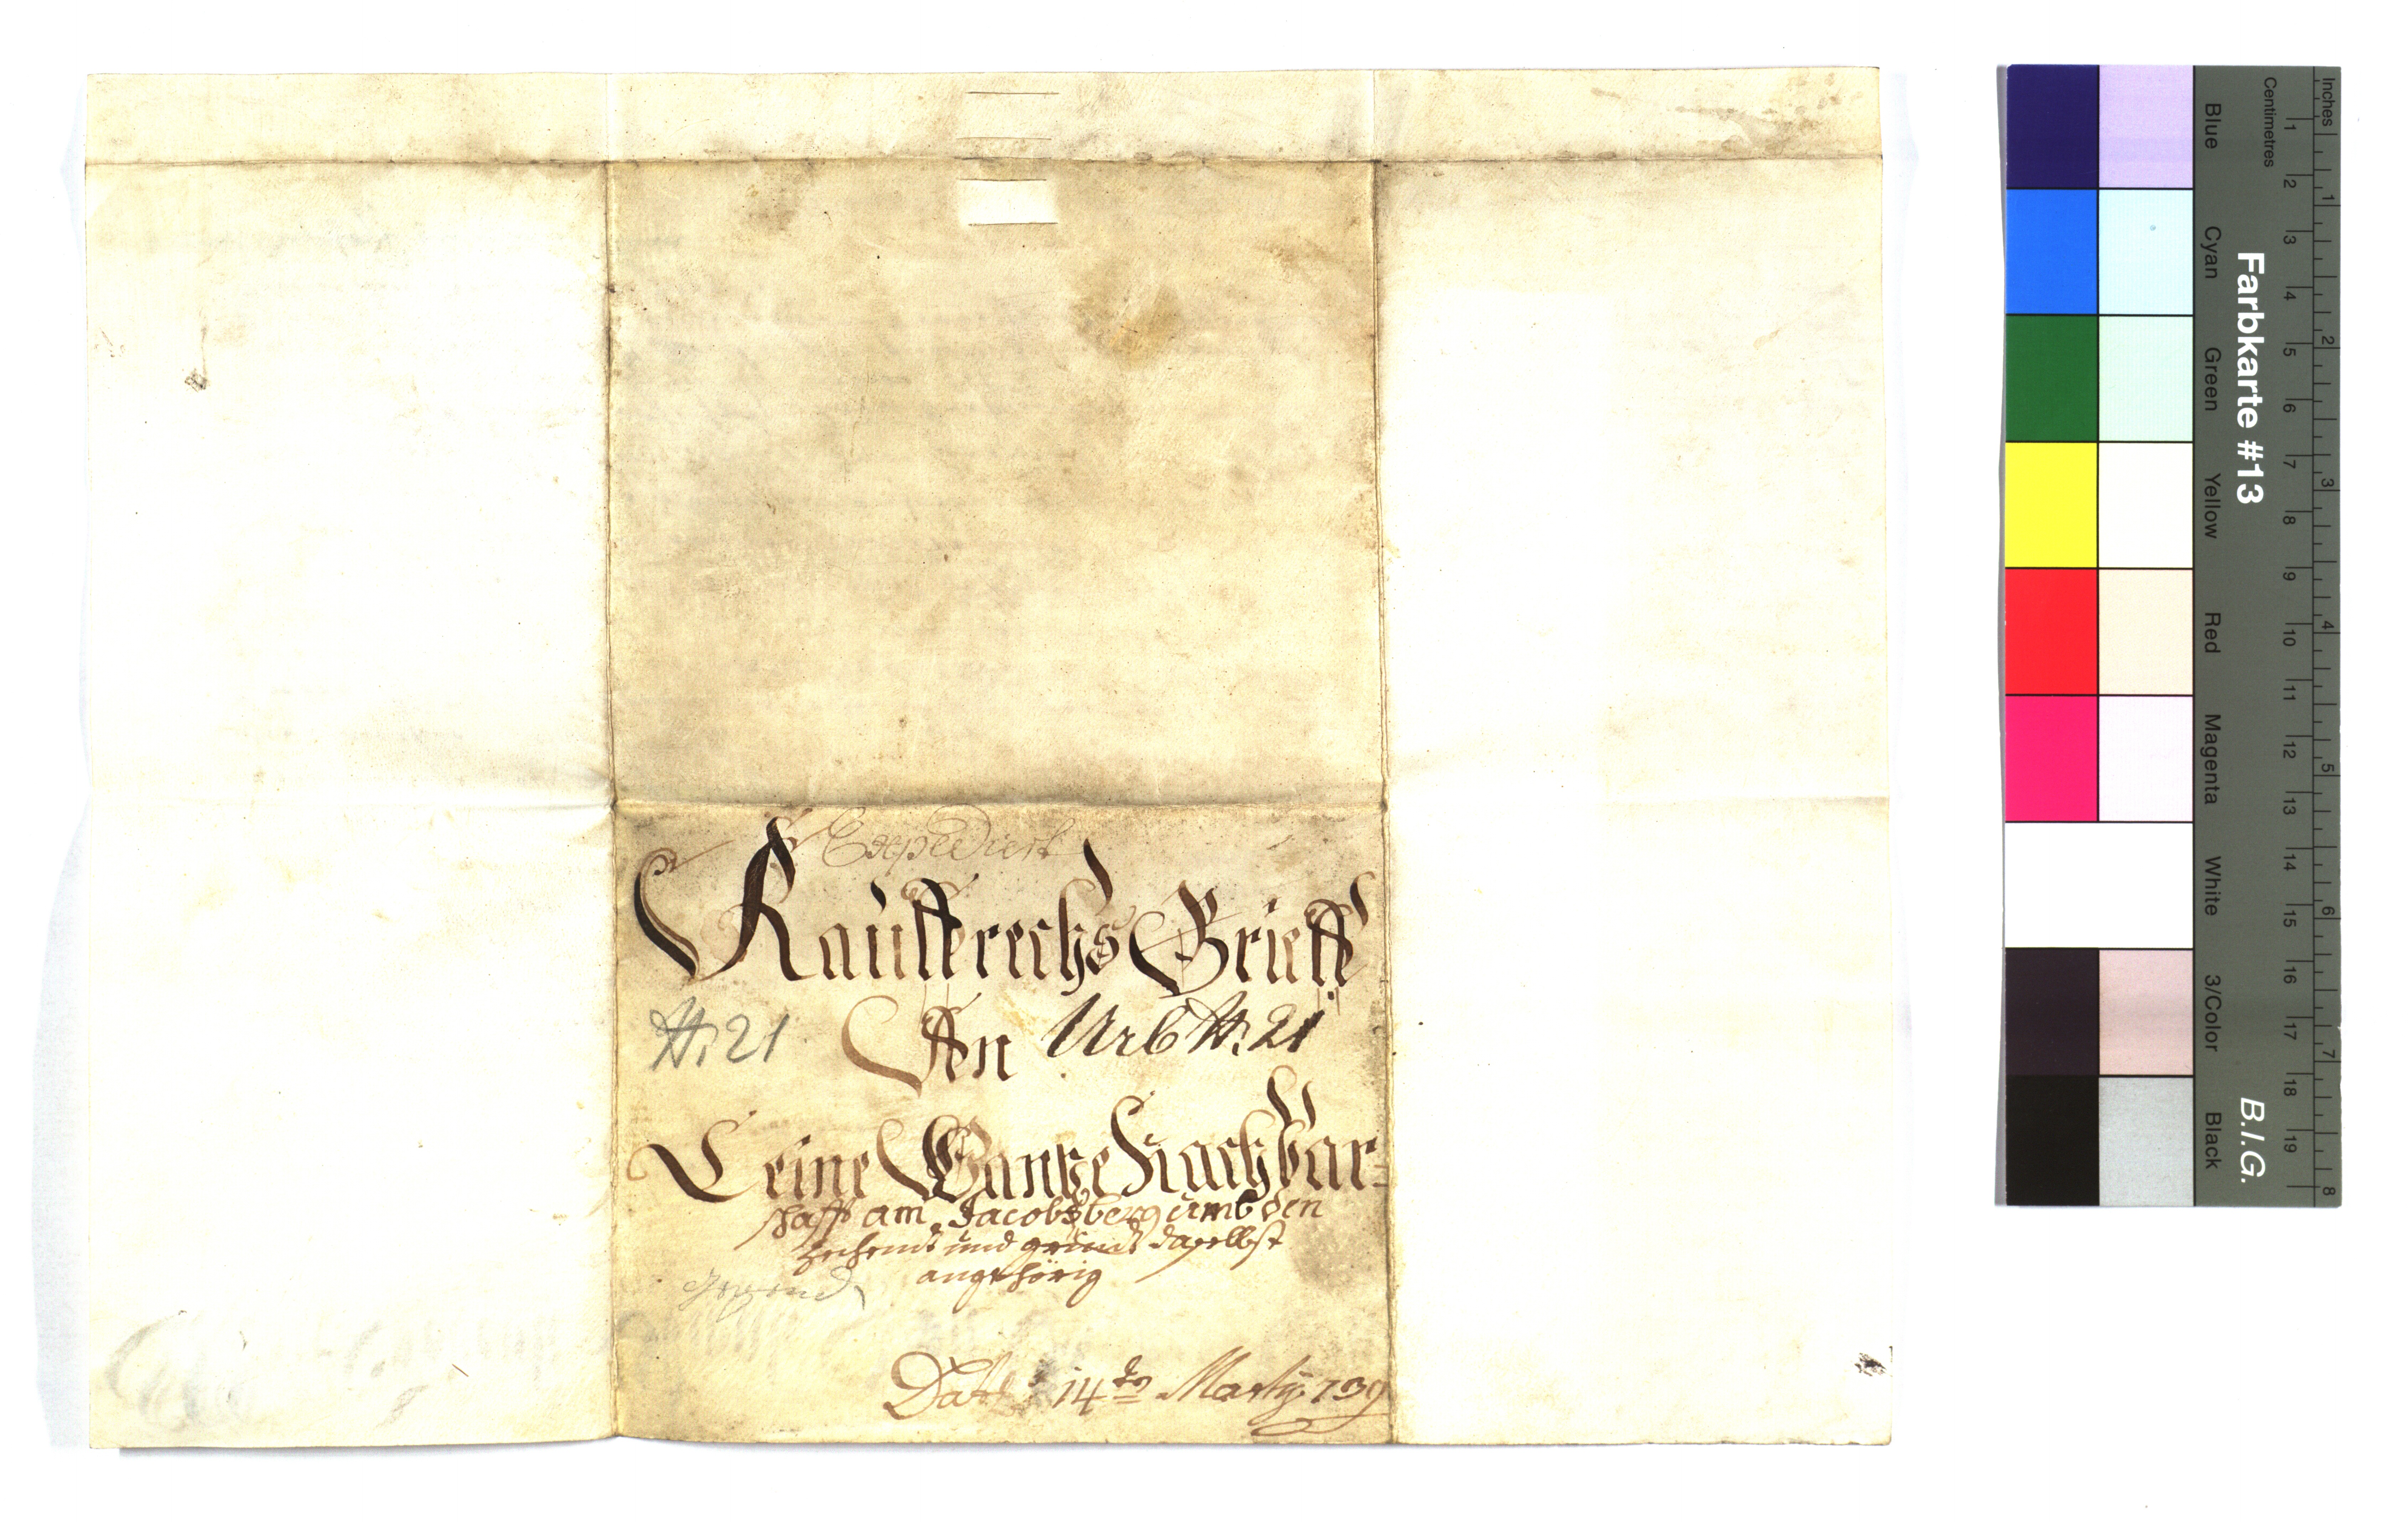 Expediert
Kauffrechts Brieff
N: 21 An Urb N: 21
Eeine Gantze Nachbar=
schafft am Jacobsberg umb den
zechendt und daselbst
angehörig
Dat 14to Marty 739
Inches
Centimetres
1 2 3 4 5 6 7 8 9 10 11 12 13 14 15 16 17 18 19
1 2 3 4 5 6 7 8
Farbkarte #13
B.I.G.
Blue Cyan Green Yellow Red Magenta White 3/Color Black